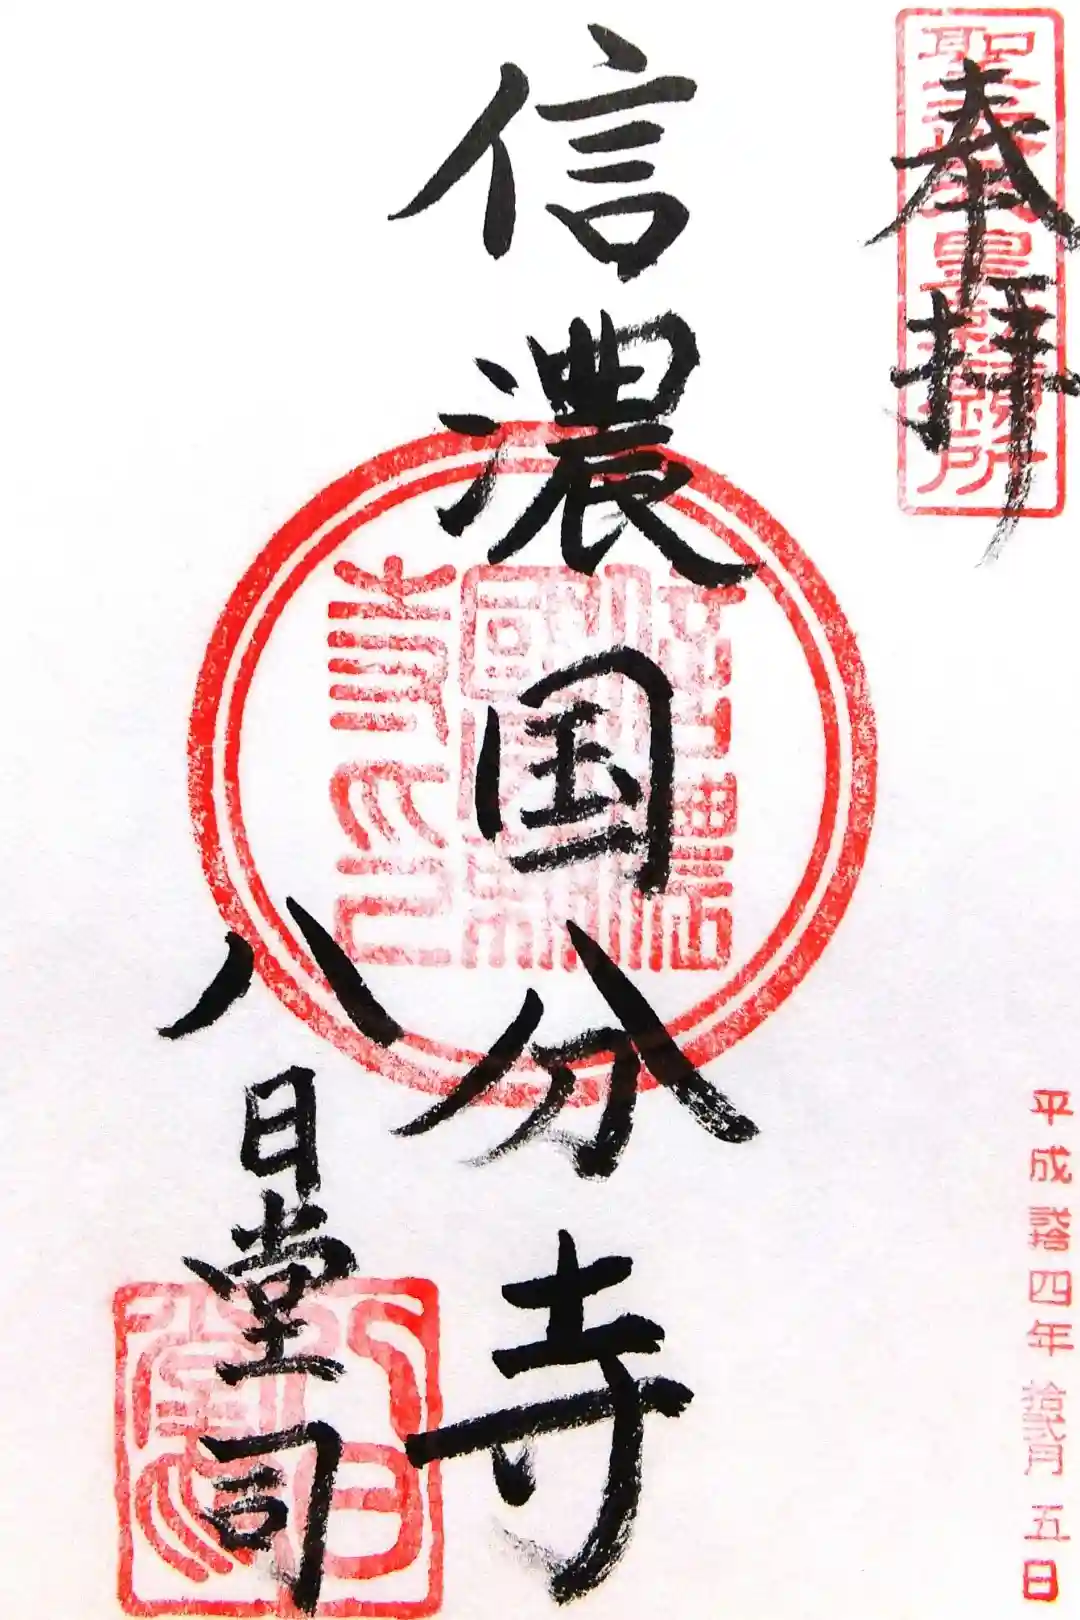 聖武天皇勅願所
奉拝
平成弐拾四年拾弐月五日
信濃国分寺
八日堂司